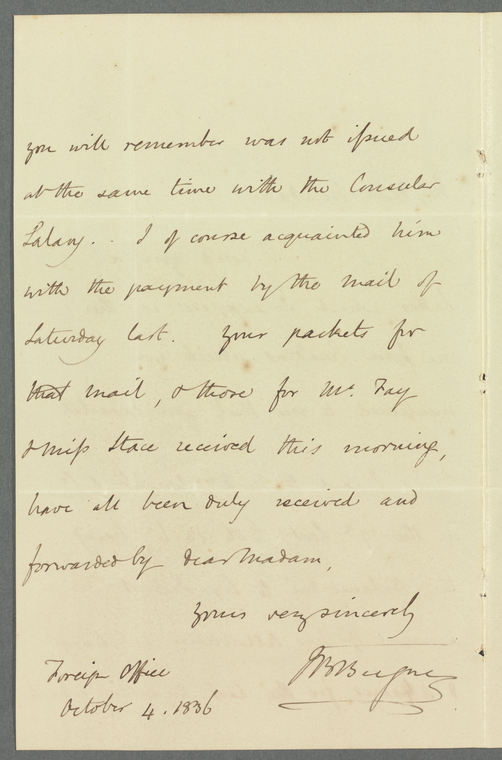 you will remember was not issued
at the same time with the Consular
Salary. . I of course acquainted him
with the payment by the mail of
Saturday last. Your packets for
that mail, & those for Mr. Fay
& Miss Stace received this morning,
have all been duly received and
forwarded by Dear Madam,
Yours very sincerely
JB Bergne
Foreign Office
October 4. 1836